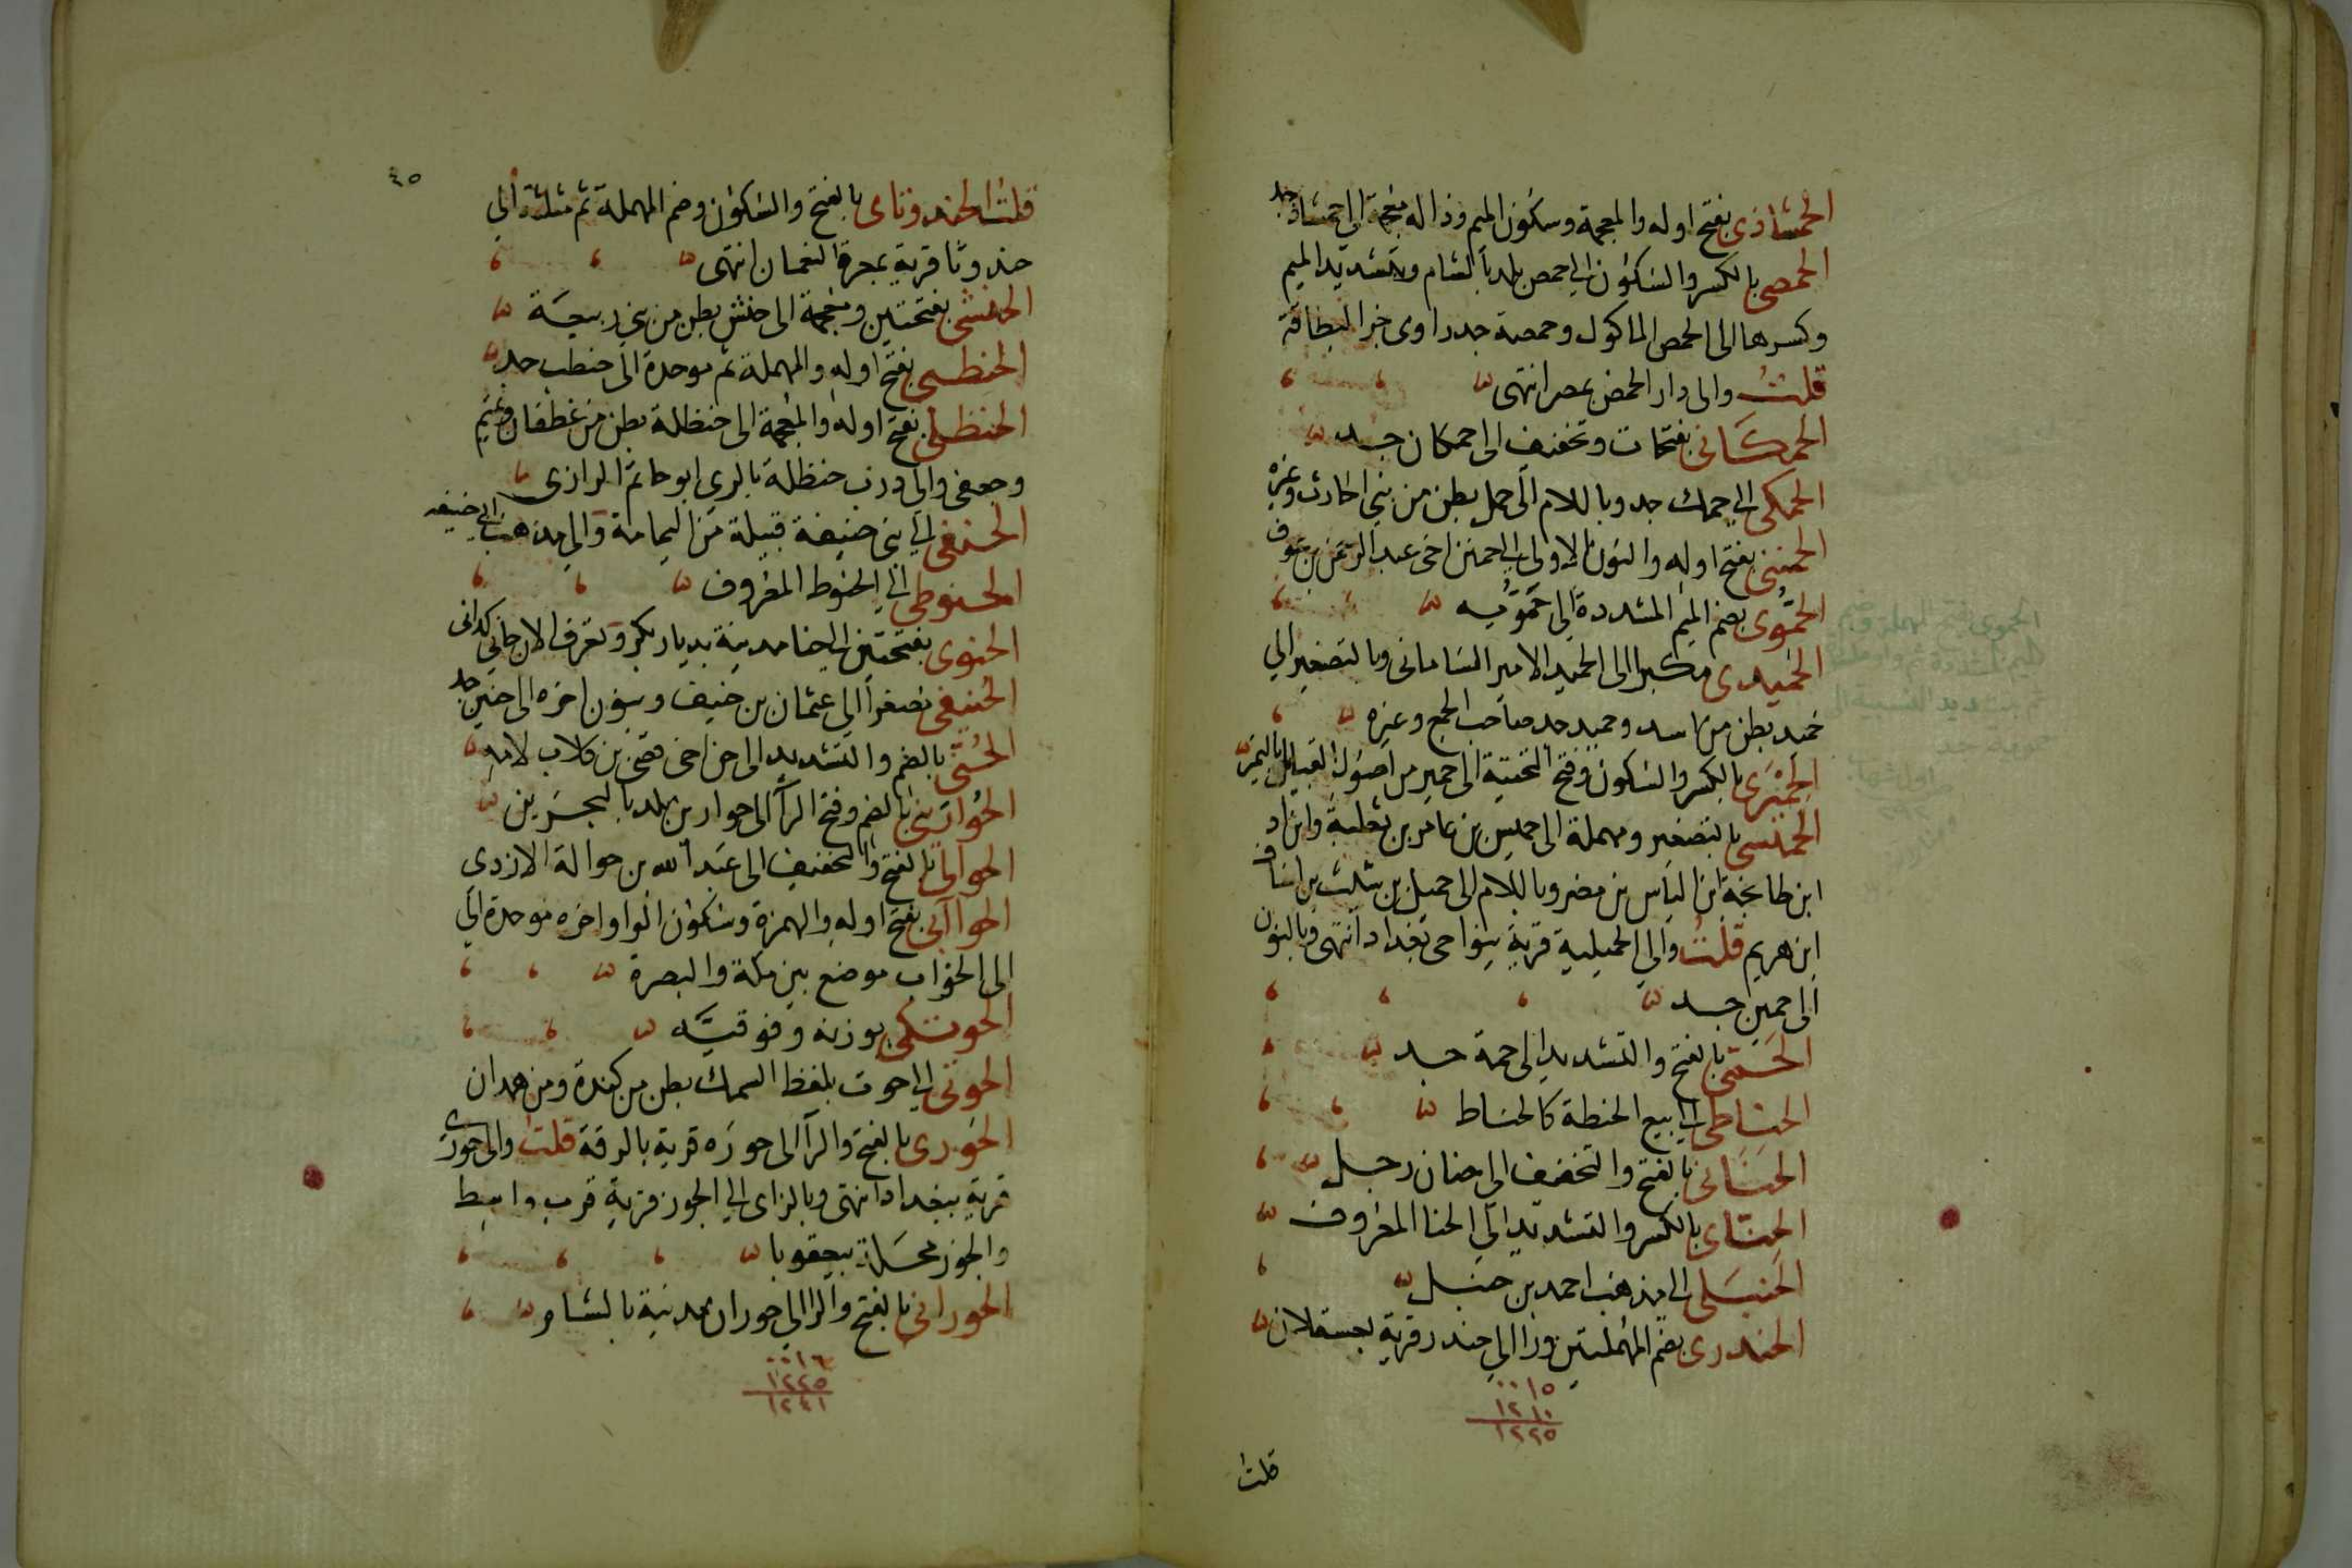 الحمشاذى بفتح اوله والمعجمة وسكون الميم وذاله معجمة الى حمشاذ جد
الحمصى بالكسر والسكون الى حمص بلد بالشام وبتشديد الميم
وكسرها الى الحمص الماكول وحمصة جد راوى خبر البطاقة
قلت والى دار الحمص بمصر انتهى
الحمكانى بفتحات وتخفيف الى حمكان جد
الحمكى الى حمك جد وباللام الى حمل بطن من بنى الحارث وغيره
الحمننى بفتح اوله والنون الاولى الى حمنن اخى عبد الرحمن بن عوف
الحموى بضم الميم المشددة الى حمويه
الحميدى مكبرا الى الحميد الامير السامانى وبالتصغير الى
حميد بطن من اسد وحميد جد صاحب الجمع وغيره
الحميرى بالكسر والسكون وفتح التحتية الى حمير من اصول القبايل باليمن
الحميسى بالتصغير ومهملة الى حميس بن عامر بن ثعلبة وابن اد
ابن طابخة بن الياس بن مضر وباللام الى حميل بن شلث بن اساف
ابن هريم قلت والى الحميلية قرية بنواحى بغداد انتهى وبالنون
الى حمين جد
الحمى بالفتح والتشديد الى حمة جد
الحناطى الى بيع الحنطة كالحناط
الحنانى بالفتح والتخفيف الى حنان رجل
الحناى بالكسر والتشديد الى الحنا المعروف
الحنبلى الى مذهب احمد بن حنبل
الحندرى بضم المهملتين ورا الى حندر قرية بعسقلان
٠٠١٥
١٢١٠
١٢٢٥
قلت
٤٥
قلت الحندوثاى بالفتح والسكون وضم المهملة ثم مثلثة الى
حندوثا قرية بمعرة النعمان انتهى
الحنشى بفتحتين ومعجمة الى حنش بطن من بنى ربيعة
الحنطبى بفتح اوله والمهملة ثم موحدة الى حنطب جد
الحنظلى بفتح اوله والمعجمة الى حنظلة بطن من غطفان وتميم
وجعفى والى درب حنظلة بالرى ابو حاتم الرازى
الحنفى الى بنى حنيفة قبيلة من اليمامة والى مذهب ابى حنيفه
الحنوطى الى الحنوط المعروف
الحنوى بفتحتين الى حنا مدينة بديار بكر وتعرف الان حانى كدانى
الحنيفى تصغيرا الى عثمان بن حنيف وبنون اخره الى حنين جد
الحنى بالضم والتشديد الى حن اخى قصى بن كلاب لامه
الحوارينى بالضم وفتح الرآ الى حوارين بلد بالبحرين
الحوالى بالفتح والتخفيف الى عبد الله بن حوالة الازدى
الحوابى بفتح اوله والهمزة وسكون الواو اخره موحدة الى
الى الحواب موضع بين مكة والبصرة
الحوتكى بوزنه وفوقيه
الحوتى الى حوت بلفظ السمك بطن من كندة ومن همدان
الحورى بالفتح والرآ الى حوره قرية بالرقة قلت والى حورى
قرية ببغداد انتهى وبالزاى الى الحوز قرية قرب واسط
والحوز محلة ببعقوبا
الحورانى بالفتح والرا الى حوران مدينة بالشام
٠٠١٦
١٢٢٥
١٢٤١